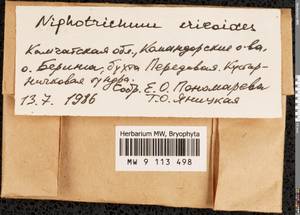 Niphotrichum ericoides
Камчатская обл., Командорские о-ва,
о. Беринга, бухта Передовая. Кустар-
ничковая тундра.
Собр. Е.О. Пономарева
13.7.1986 Т.О. Яницкая
Herbarium MW, Bryophyta
MW 9 113 498